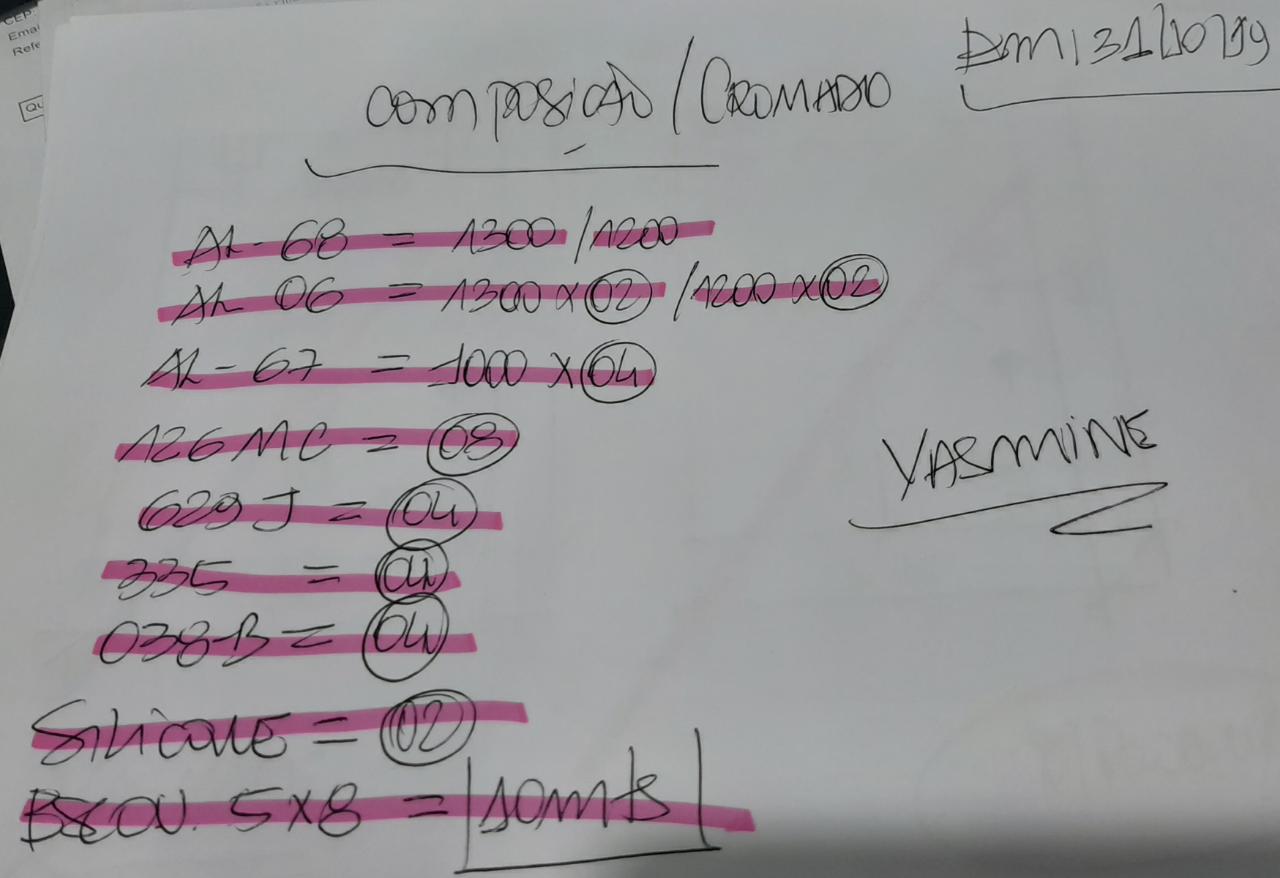 CEP:
Emai
Refe
QU
DM 31/10/19
COMPOSIÇÃO / CROMADO
AL-68 = 1300 / 1200
AL 06 = 1300 x 02 / 1200 x 02
AL-67 = 1000 x 04
126 MC = 08
YASMINE
629 J = 04
335 = 04
038-B = 04
SILICONE = 02
5x8 = 10mts